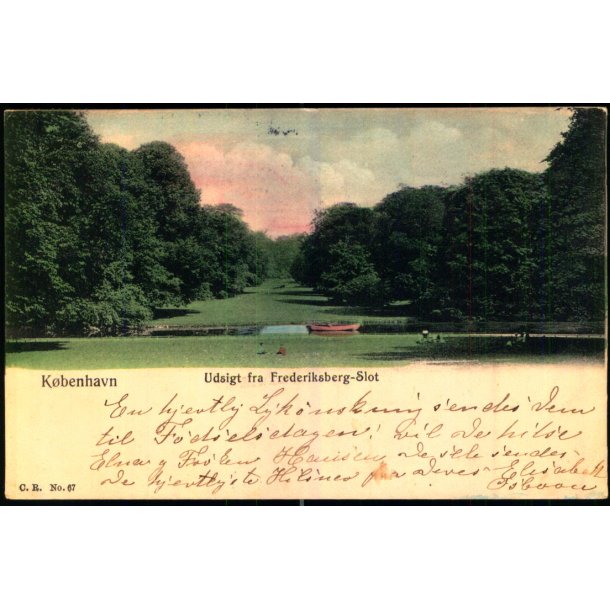 København
Udsigt fra Frederiksberg-Slot
En hjertlig Lykønskning sendes Dem
til Fødselsdagen! vil De hilse
Elna og Frøken Hansen De selv sendes
De hjertligste Hilsner fra Deres Elisabeth
C. R. No. 67